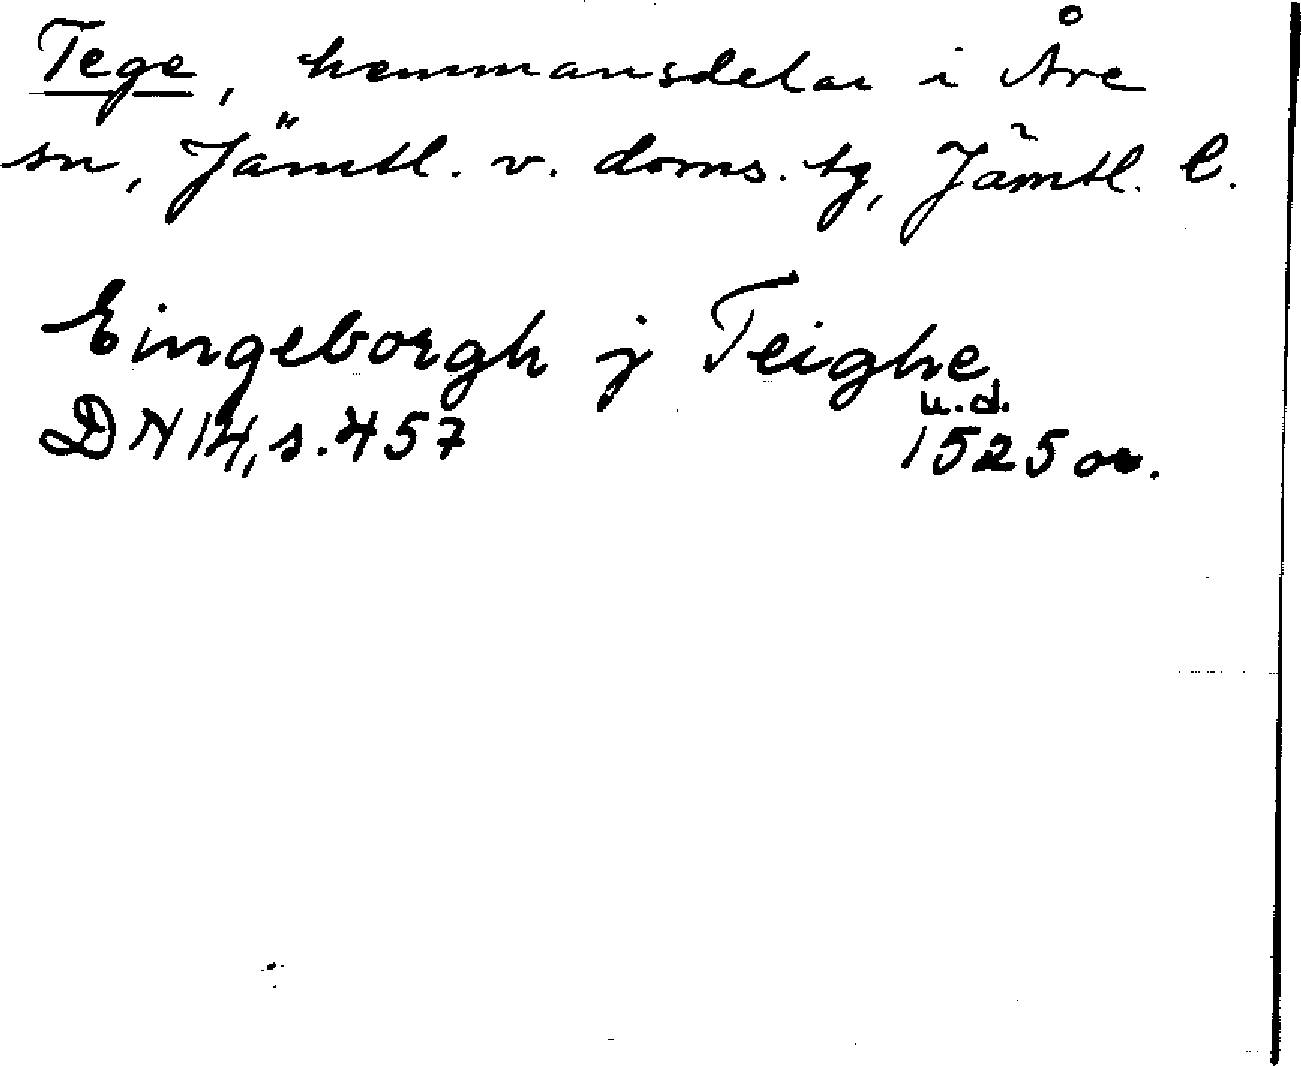 Tege, hemmansdelar i Åre
sn, Jämtl. v. doms. tg, Jämtl. l.
Eingeborgh j Teighe
u.d.
DN 14, s. 457 1525 or.